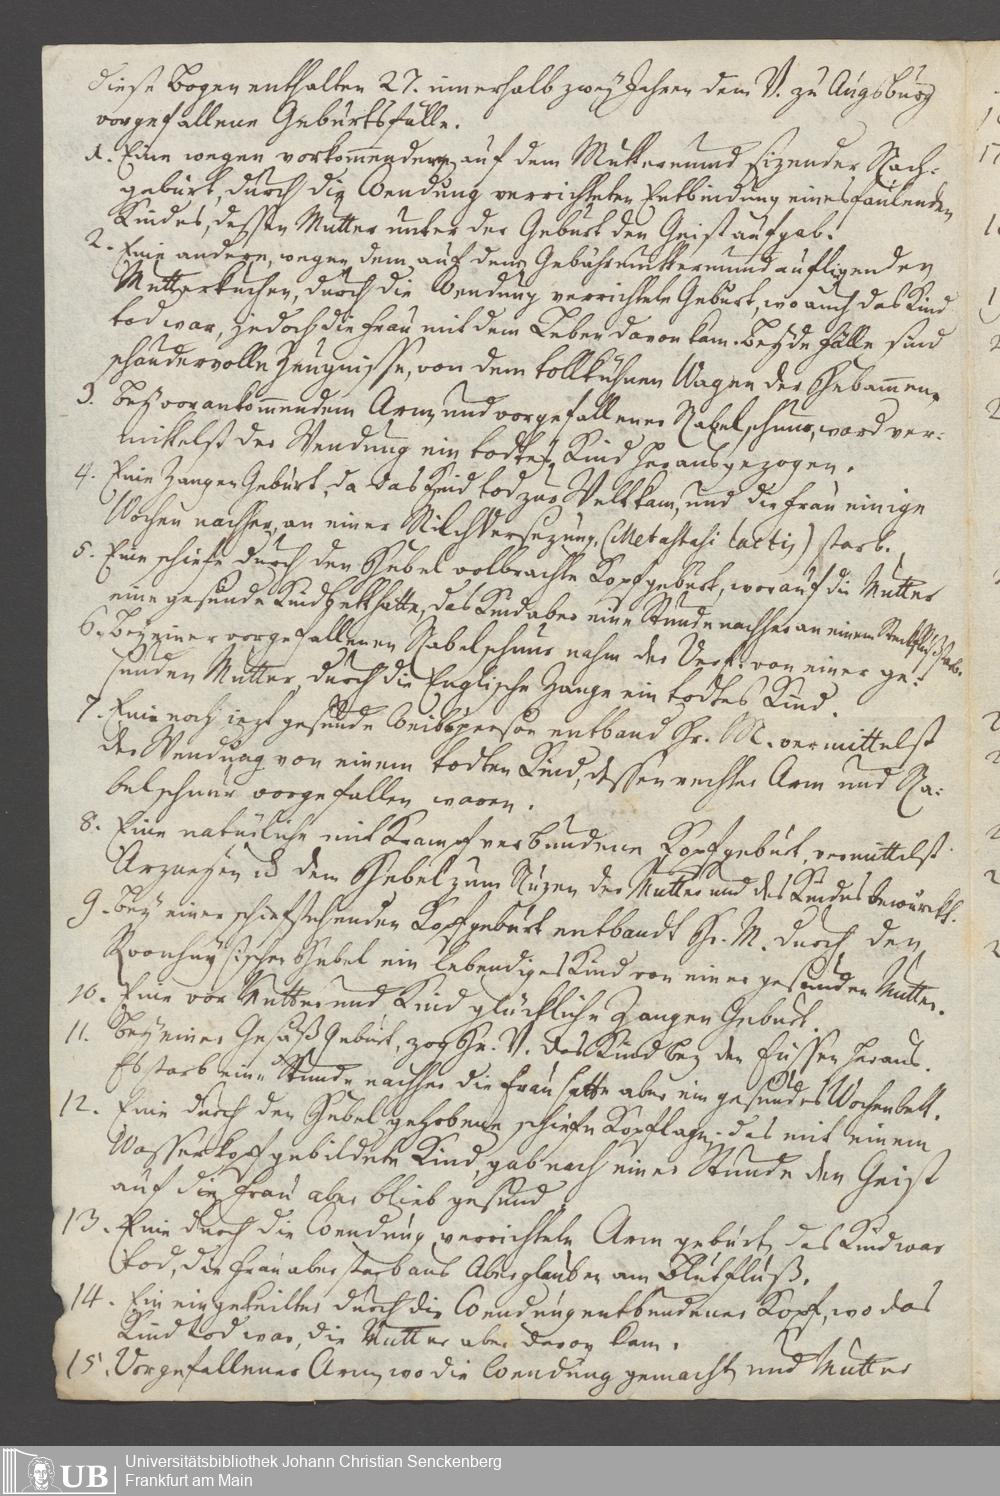 Diese Bogen enthalten 27. innerhalb zwey Jahren dem V. zu Augsburg
vorgefallene Geburtsfälle.
1. Eine wegen vorkom̄ender, auf dem Muttermund sizender Nach-
geburt, durch die Wendung verrichteten Entbindung eines faulenden
Kindes, dessen Mutter unter der Geburt den Geist aufgab.
2. Eine andere, wegen dem auf dem Gebährmuttermund aufligenden
Mutterkuchen, durch die Wendung verrichtete Geburt, wo auch das Kind
tod war, jedoch die Frau mit dem Leben davon kam. Beyde Fälle sind
schaudervolle Zeugnisse, von dem tollkühnen Wagen der Hebam̄en.
3. Bey vorankom̄endem Arm, und vorgefallener Nabelschnur, ward ver-
mittelst der Wendung ein todtes Kind herausgezogen.
4. Eine Zangen Geburt, da das Kind tod zur Welt kam, und die Frau einige
Wochen nachher, an einer Milch Versezung, (Metastasi lactis) starb.
5. Eine schiefe durch den Hebel volbrachte Kopfgeburt, worauf die Mutter
eine gesunde Kindbett hatte, das Kind aber eine Stunde nachher an einem Steckfluß starb.
6. Bey einer vorgefallenen Nabelschnur nahm der Verf. von einer ge-
sunden Mutter, durch die Englische Zange ein todtes Kind.
7. Eine noch jezt gesunde Weibsperson entband Hr. M. vermittelst
der Wendung von einem todten Kind, dessen rechter Arm und Na-
belschnur vorgefallen waren.
8. Eine natürliche mit Krampf verbundene Kopfgeburt, vermittelst
Arzneyen u dem Hebel zum Nuzen der Mutter und des Kindes bewürckt.
9. Bey einer schiefstehenden Kopfgeburt entbandt Hr. M. durch den
Roonhuysischen Hebel ein lebendiges Kind von einer gesunden Mutter.
10. Eine vor Mutter und Kind glückliche Zangen Geburt.
11. Bey einer Gesäß Geburt, zog Hr. V. das Kind bey den Füssen heraus.
Es starb eine Stunde nachher die Frau hatte aber ein gesundes Wochenbett.
12. Eine durch den Hebel gehobene schiefe Kopflage; das mit einem
Wasserkopf gebildete Kind, gab nach einer Stunde den Geist
auf die Frau aber blieb gesund.
13. Eine durch die Wendung verrichtete Arm geburt, das Kind war
tod, die Frau aber starb aus Aberglauben am Blutfluß.
14. Ein eingekeilter durch die Wendung entbundener Kopf, wo das
Kind tod war, die Mutter aber davon kam.
15. Vorgefallener Arm, wo die Wendung gemacht, und Mutter
UB
Universitätsbibliothek Johann Christian Senckenberg
Frankfurt am Main